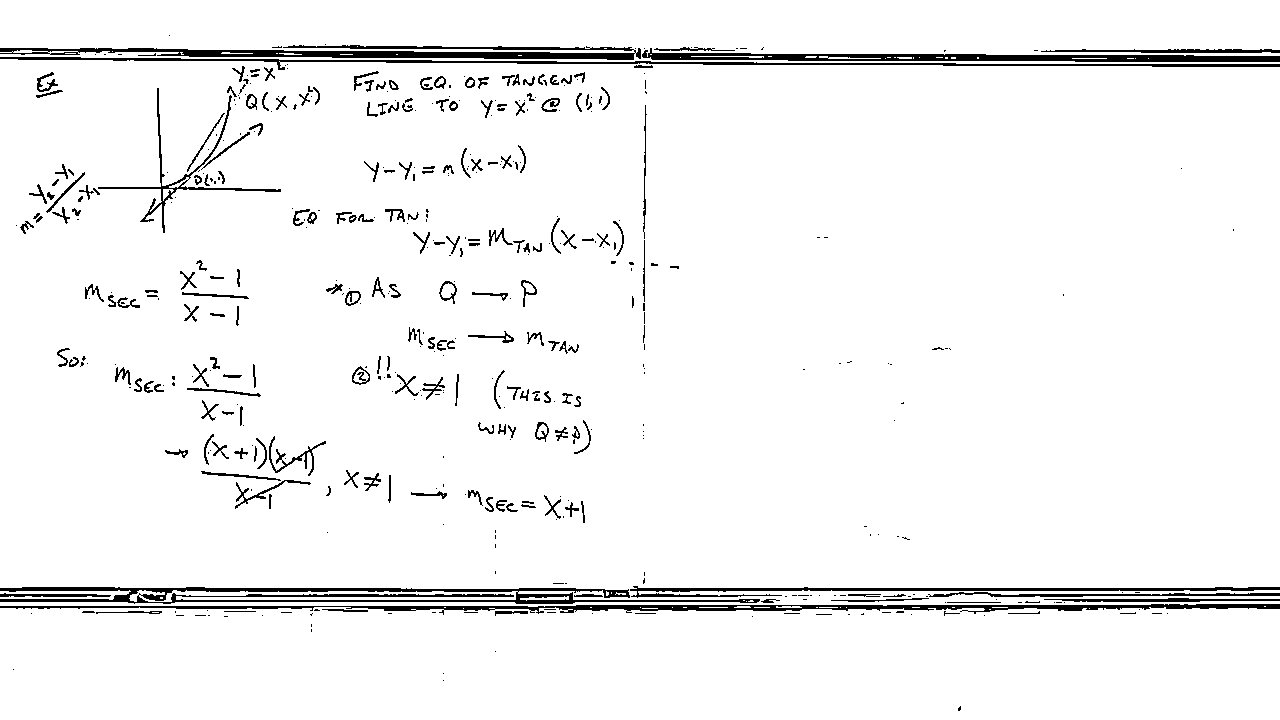 Ex
y=x²
Q(x,x²)
P(1,1)
m= y₂-y₁/x₂-x₁
FIND EQ. OF TANGENT
LINE TO y=x² @ (1,1)
y-y₁=m(x-x₁)
EQ FOR TAN:
y-y₁=m_TAN(x-x₁)
m_SEC= x²-1/x-1
* ① AS Q → P
m_SEC → m_TAN
So: m_SEC: x²-1/x-1
② !! x≠1 (THIS IS
WHY Q≠P)
→ (x+1)(x-1)/x-1, x≠1 → m_SEC=x+1